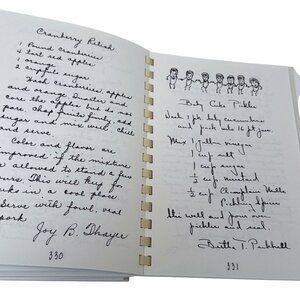 Cranberry Relish
1 Pound cranberries
2 tart red apples
1 orange
sugar
Wash cranberries, apples
and orange. Quarter and
core the apples but do not
pare. Chop fruits finely, add
sugar and mix well. Chill
and serve.
Color and flavor are
improved if the mixture
is allowed to stand a few
hours. This will keep for
weeks in a cool place.
Serve with fowl, veal
pork
Joy B. Thayer
330
Baby Cuke Pickles
Wash 1 pk. baby cucumbers
and pack into 16 pt. jars.
Mix 1 gallon vinegar
1 cup salt
1 cup
1/2 cup mustard
1/2 cup Champlain Mills
Pickling Spice
Mix well and pour over
pickles and seal.
Bertha T.
331